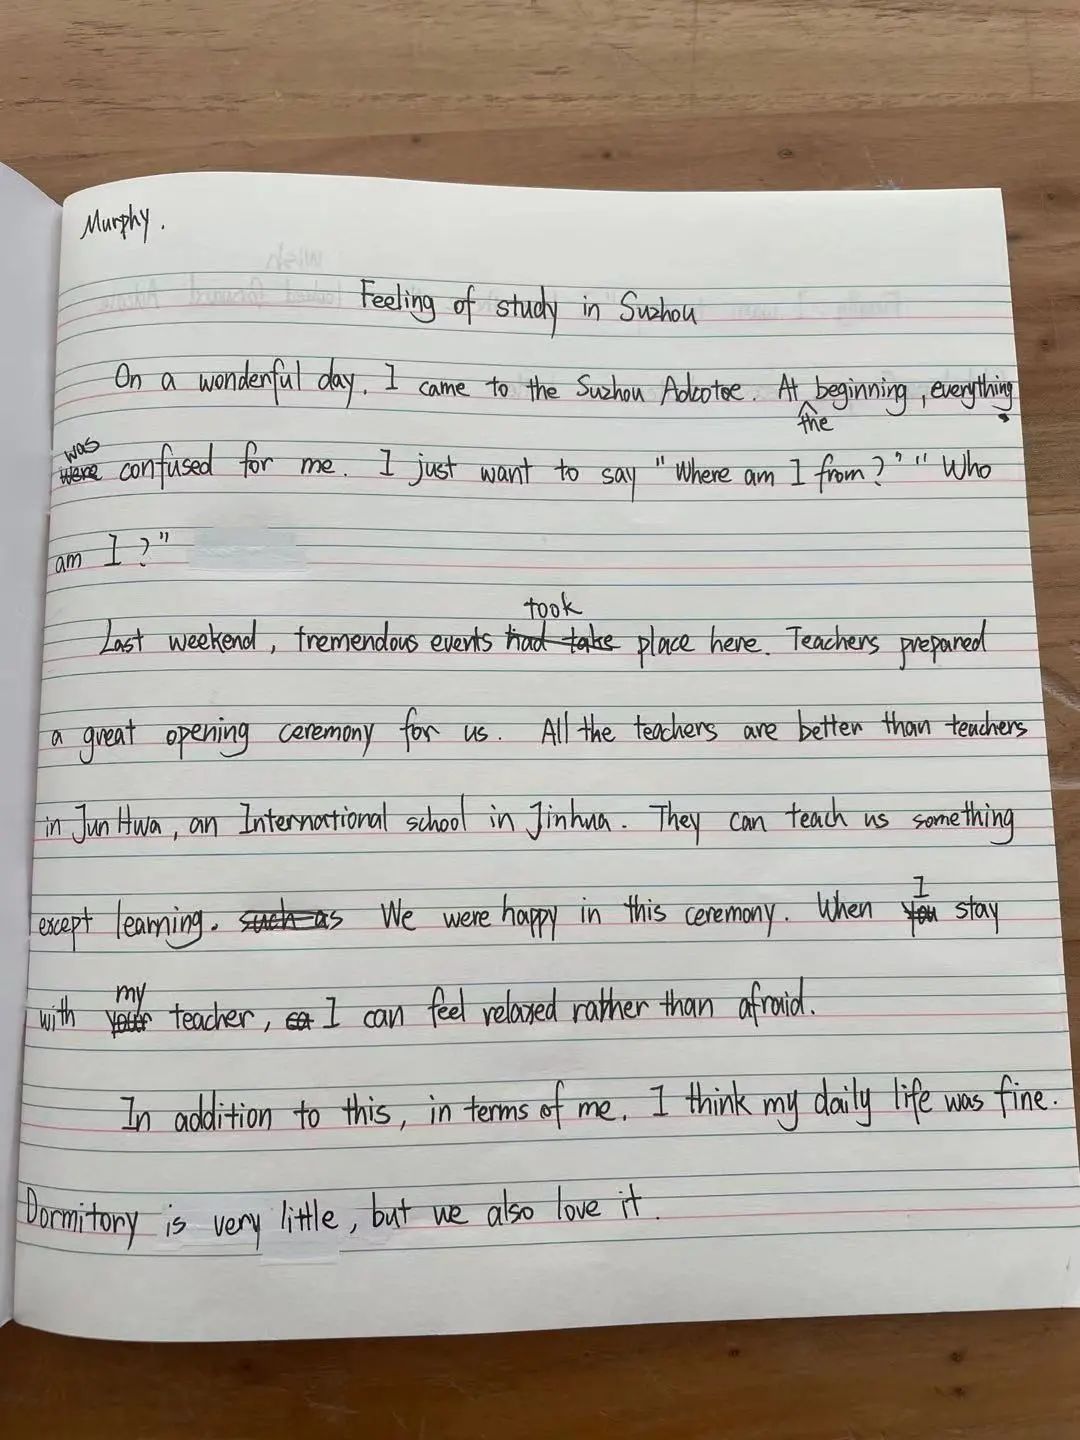 Murphy.
Feeling of study in Suzhou
On a wonderful day, I came to the Suzhou Adcotoe. At the beginning, everything
was confused for me. I just want to say "Where am I from?" "Who
am I?"
Last weekend, tremendous events took place here. Teachers prepared
a great opening ceremony for us. All the teachers are better than teachers
in Jun Hwa, an International school in Jinhua. They can teach us something
except learning. We were happy in this ceremony. When I stay
with my teacher, I can feel relaxed rather than afraid.
In addition to this, in terms of me, I think my daily life was fine.
Dormitory is very little, but we also love it.